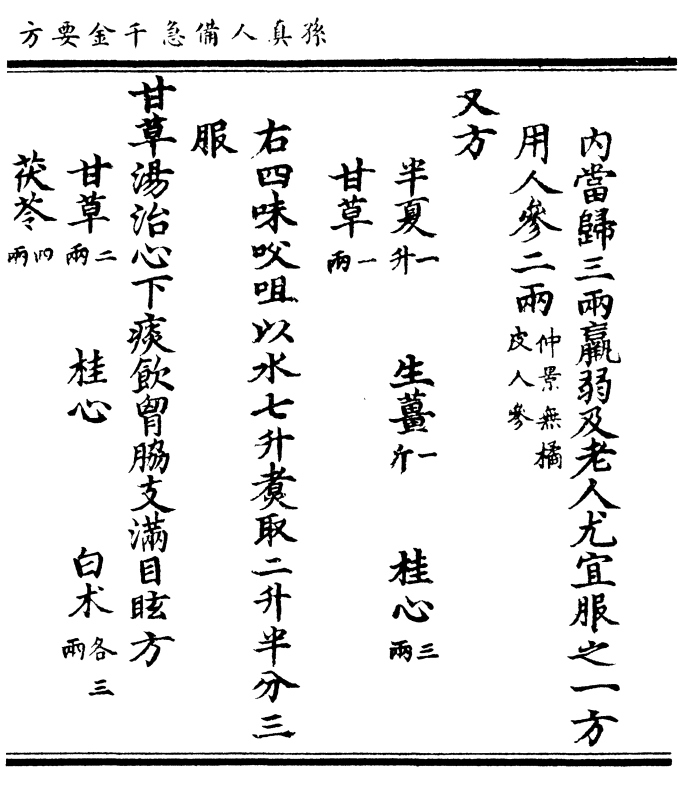 孫真人備急千金要方
內當歸三兩羸弱及老人尤宜服之一方
用人參二兩仲景無橘皮人參
又方
半夏一升 生薑一斤 桂心三兩
甘草一兩
右四味㕮咀以水七升煑取二升半分三
服
甘草湯治心下痰飲胷脇支滿目眩方
甘草二兩 桂心 白朮各三兩
茯苓四兩